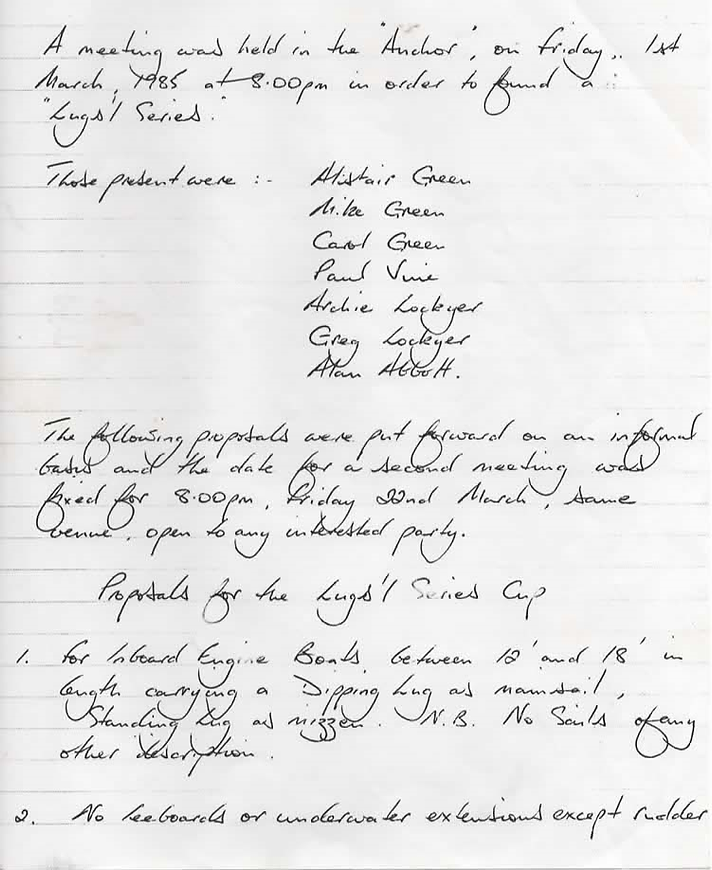 A meeting was held in the "Anchor", on Friday, 1st
March, 1985 at 8.00pm in order to found a
"Lugs'l Series."
Those present were :- Alistair Green
Mike Green
Carol Green
Paul Vine
Archie Lockyer
Greg Lockyer
Alan Abbott.
The following proposals were put forward on an informal
basis and the date for a second meeting was
fixed for 8.00pm, Friday 22nd March, same
venue, open to any interested party.
Proposals for the Lugs'l Series Cup
1. For Inboard Engine Boats between 12' and 18' in
length carrying a Dipping Lug as mainsail,
Standing Lug as mizzen. N.B. No Sails of any
other description.
2. No leeboards or underwater extensions except rudder